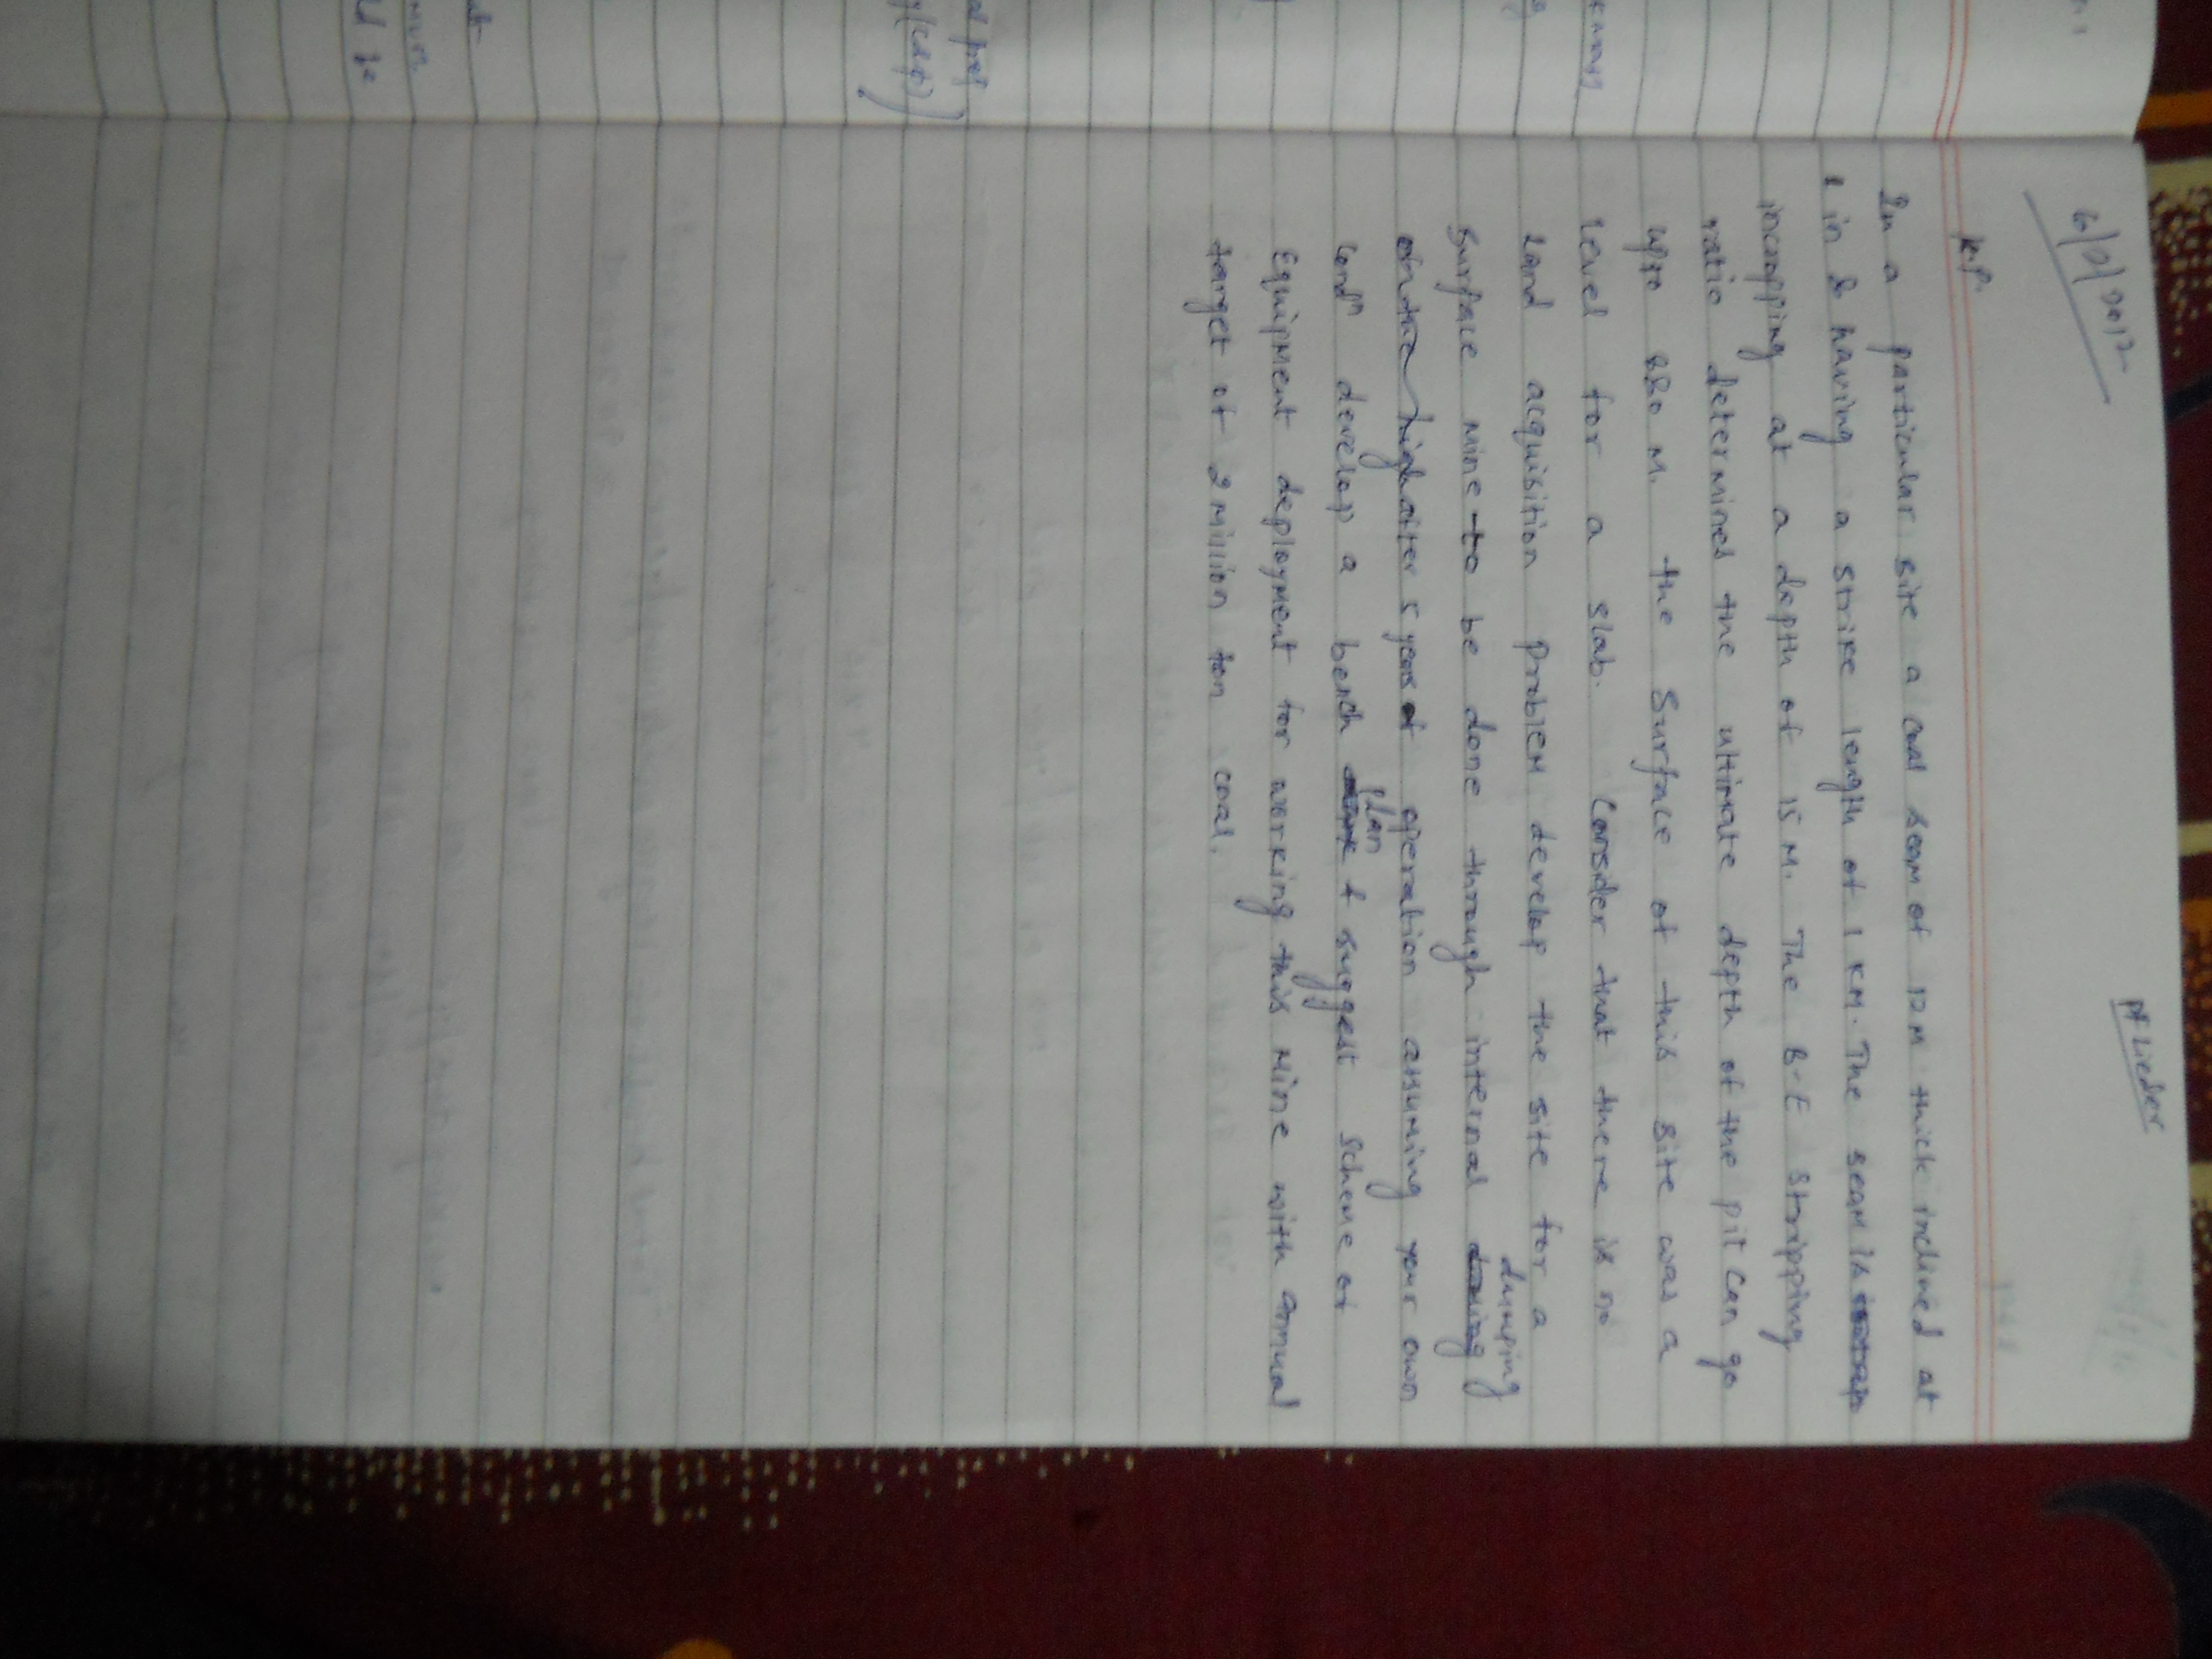 6/9/2012
Pflieder
K.P.
In a particular site a coal seam of 12 M thick inclined at
1 in 8 having a strike length of 1 KM. The seam is
incropping at a depth of 15 M. The B.E Stripping
ratio determines the ultimate depth of the pit can go
upto 880 M. the Surface of this site was a
level for a slab. Consider that there is no
Land acquisition problem develop the site for a
Surface mine to be done through internal dumping
after 5 years of operation assuming your own
Condn develop a bench Plan & suggest Scheme of
Equipment deployment for working this Mine with annual
target of 2 million ton coal.